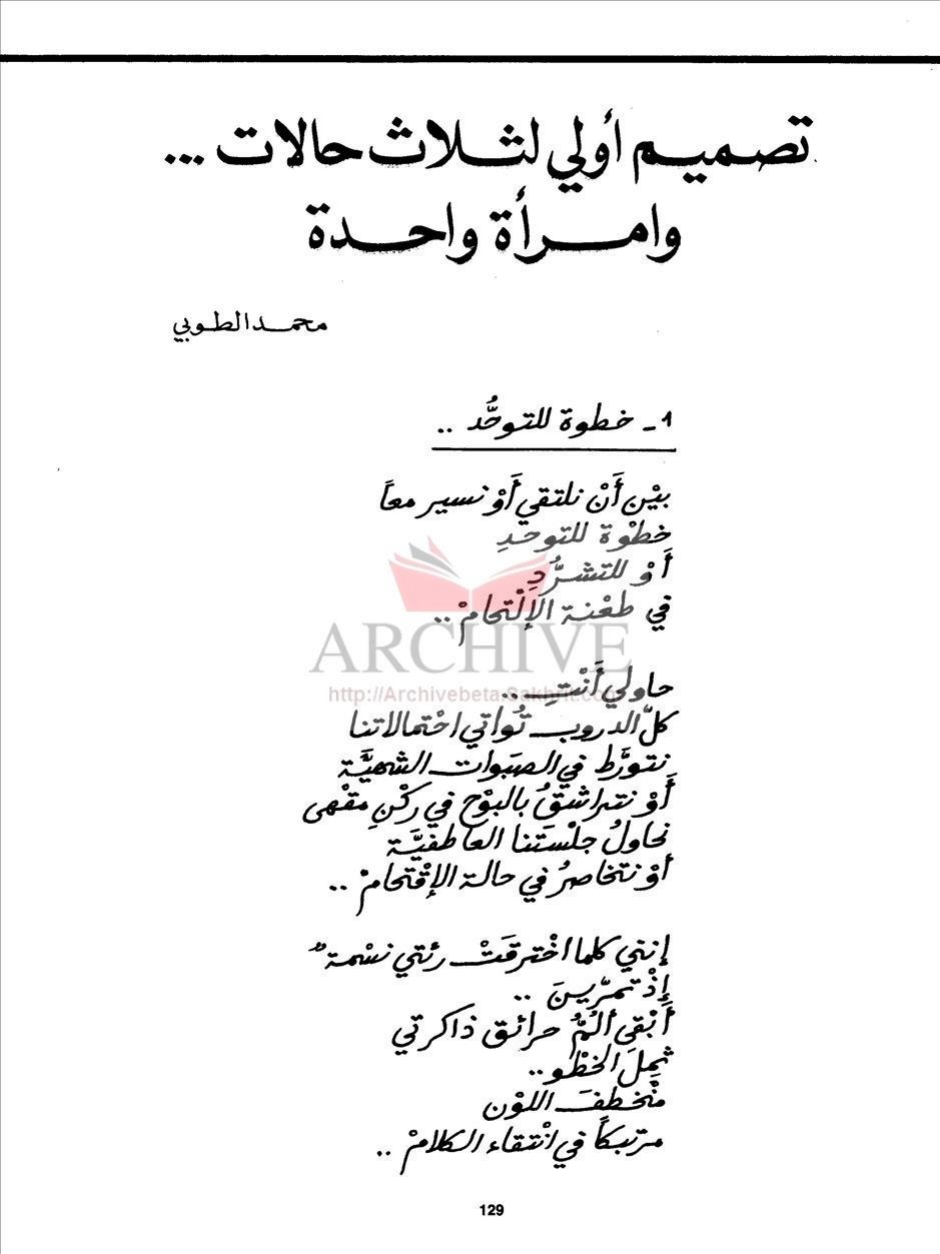 تصميم أولي لثلاث حالات ...
وامرأة واحدة
محمد الطوبي
1 - خطوة للتوحُّد ..
بيْن أَنْ نلتقي أَوْ نسير معاً
خطْوة للتوحدِ
أَوْ للتشرُّدِ
في طعْنة الإلْتحامْ ..
ARCHIVE
حاولي أَنْتِ ..
http://Archivebeta.Sakhrit.com
كلّ الدروب تُواتي احْتمالاتنا
نتورَّط في الصبَوات الشهيَّة
أَوْ نتراشقُ بالبوْح في ركْنِ مقْهى
نحاولُ جلْستَنا العاطفيَّة
أوْ نتخاصرُ في حالة الإقْتحامْ ..
إنني كلما اخْترقَتْ رئتي نسْمةٌ
إِذْ تمرّينَ ..
أَبْقى ألمُّ حرائق ذاكرتي
ثمِلَ الخطْو ..
منْخطفَ اللوْن
مرْتبكاً في انْتقاء الكلامْ ..
129